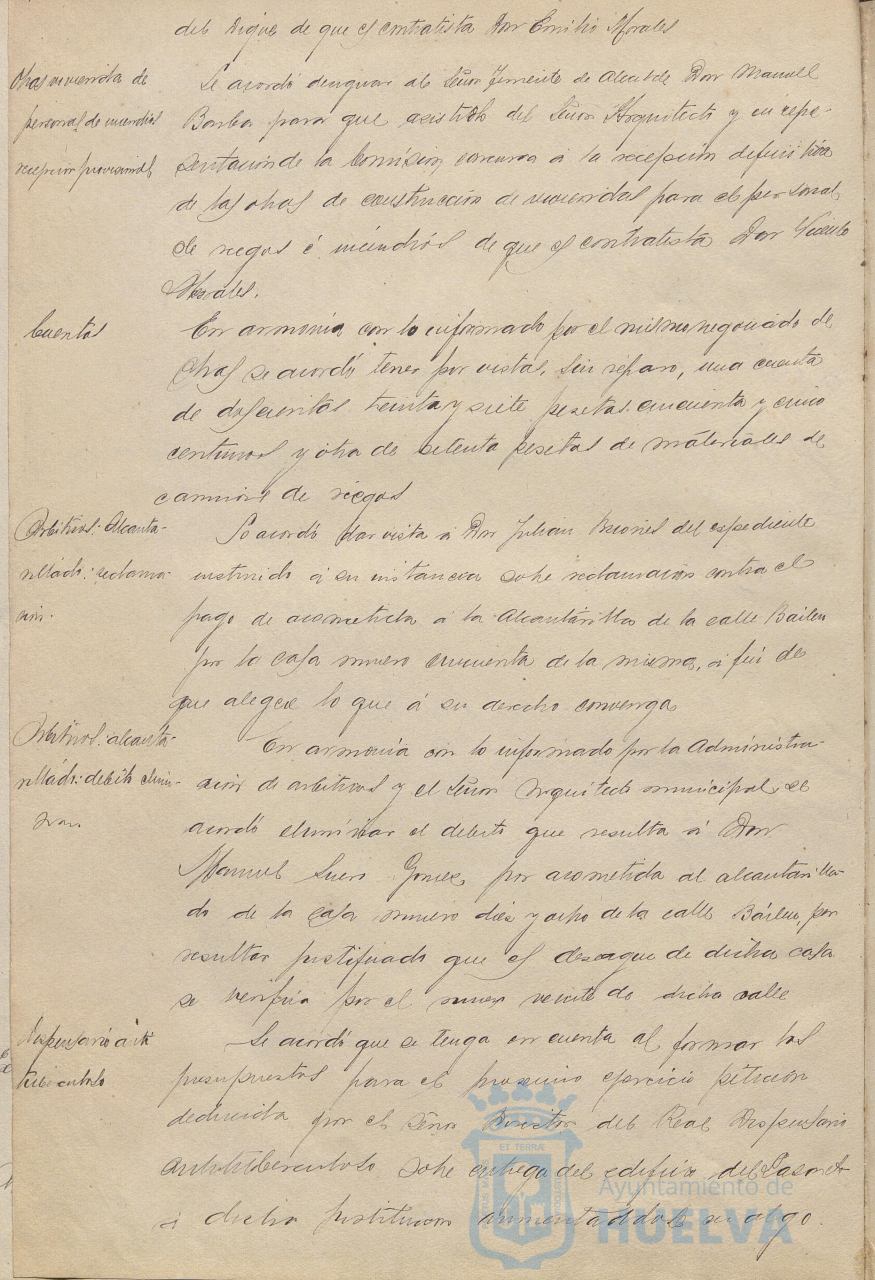 del Dique de que es contratista Don Emilio Morales
Obras vivienda de
personal de incendios
recepcion provisional
Se acordó designar al Señor Teniente de Alcalde Don Manuel
Barba para que asistido del Señor Arquitecto y en repre-
sentación de la Comision, concurra á la recepcion definitiva
de las obras de construccion de viviendas para el personal
de riegos é incendios de que es contratista Don
Morales.
Cuentas
En armonia con lo informado por el mismo negociado de
Obras se acordó tener por vistas, sin reparo, una cuenta
de doscientas treinta y siete pesetas cincuenta y cinco
centimos y otra de setenta pesetas de materiales de
camiones de riegos
Arbitrios: Alcanta-
rillado: reclama-
cion.
Se acordó dar vista á Don Julian Briones del expediente
instruido á su instancia sobre reclamacion contra el
pago de acometida á la Alcantarilla de la calle Bailen
por la casa numero cincuenta de la misma, á fin de
que alegue lo que á su derecho convenga
Arbitrios: alcanta-
rillado: debito elimi-
nar.
En armonia con lo informado por la Administra-
cion de arbitrios y el Señor Arquitecto municipal, se
acordó eliminar el debito que resulta á Don
Manuel Suero Gomez por acometida al alcantarilla-
do de la casa numero diez y ocho de la calle Bailen, por
resultar justificado que el desague de dicha casa
se verifica por el numero veinte de dicha calle
Dispensario anti
tuberculoso
Se acordó que se tenga en cuenta al formar los
presupuestos para el proximo ejercicio peticion
deducida por el Señor Director del Real Dispensario
antituberculoso sobre entrega del edificio del Lazareto
á dicha Institucion
ET TERRÆ
Ayuntamiento de
HUELVA